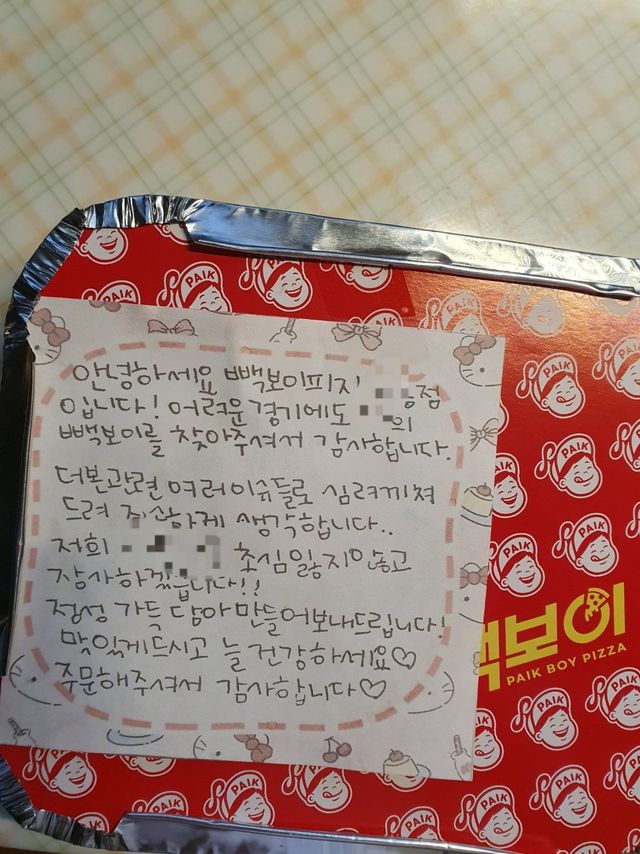 안녕하세요 빽보이피자 점
입니다! 어려운 경기에도 의
빽보이를 찾아주셔서 감사합니다.
더본관련 여러이슈들로 심려끼쳐
드려 죄산하게 생각합니다..
저희 초심잃지안코
장사하겠습니다!!
정성 가득 담아만들어보내드립니다!
맛있게드시고 늘 건강하세요♡
주문해주셔서 감사합니다♡
빽보이
PAIK BOY PIZZA
PAIK